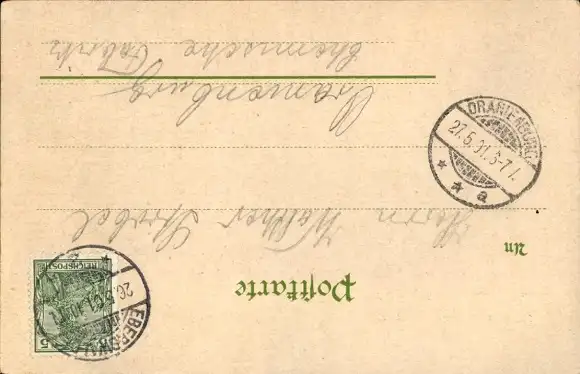 Postkarte
An
Herrn Walther Strobel
Oranienburg
Chemische Fabrik
REICHSPOST
5
ORANIENBURG
27.5.01.6-7
* * a
26.5.01